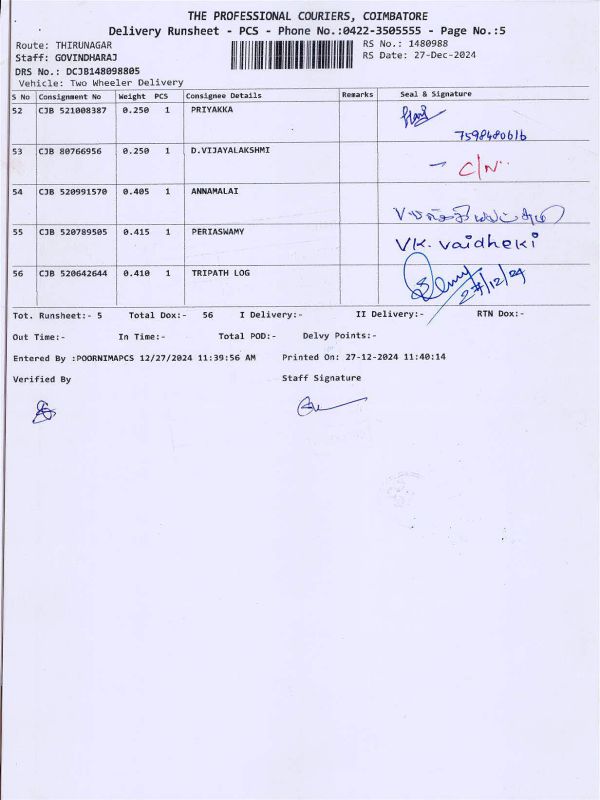 THE PROFESSIONAL COURIERS, COIMBATORE
Delivery Runsheet - PCS - Phone No.:0422-3505555 - Page No.:5
Route: THIRUNAGAR RS No.: 1480988
Staff: GOVINDHARAJ RS Date: 27-Dec-2024
DRS No.: DCJB148098805
Vehicle: Two Wheeler Delivery
S No Consignment No Weight PCS Consignee Details Remarks Seal & Signature
52 CJB 521008387 0.250 1 PRIYAKKA
7598480616
53 CJB 80766956 0.250 1 D.VIJAYALAKSHMI
- C/N
54 CJB 520991570 0.405 1 ANNAMALAI
55 CJB 520789505 0.415 1 PERIASWAMY VK. Vaidheki
56 CJB 520642644 0.410 1 TRIPATH LOG
27/12/24
Tot. Runsheet:- 5 Total Dox:- 56 I Delivery:- II Delivery:- RTN Dox:-
Out Time:- In Time:- Total POD:- Delvy Points:-
Entered By :POORNIMAPCS 12/27/2024 11:39:56 AM Printed On: 27-12-2024 11:40:14
Verified By Staff Signature